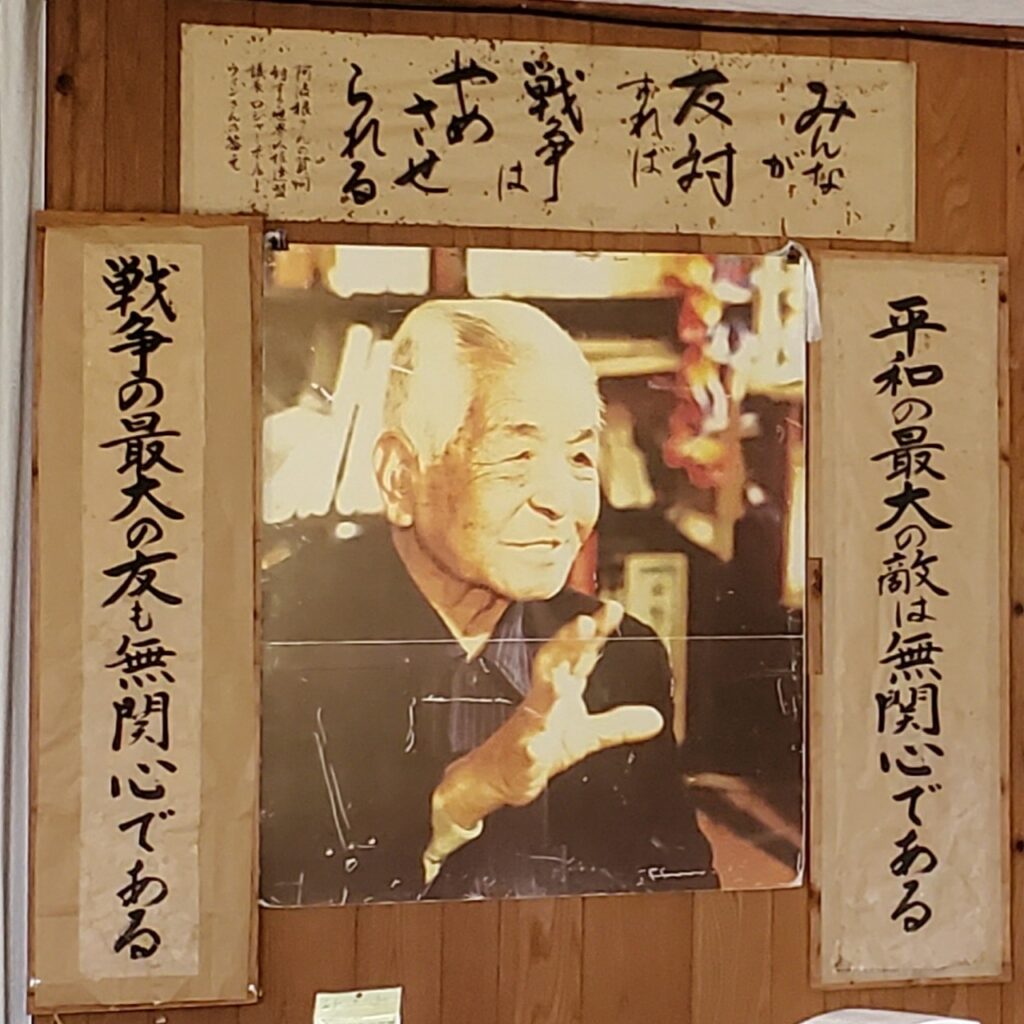 みんな
が
反対
すれば
戦争
は
やめ
させ
られる
阿波根さんの質問
に対する世界人権連盟
議長ロジャーボールド
ウィンさんの答え
平和の最大の敵は無関心である
戦争の最大の友も無関心である